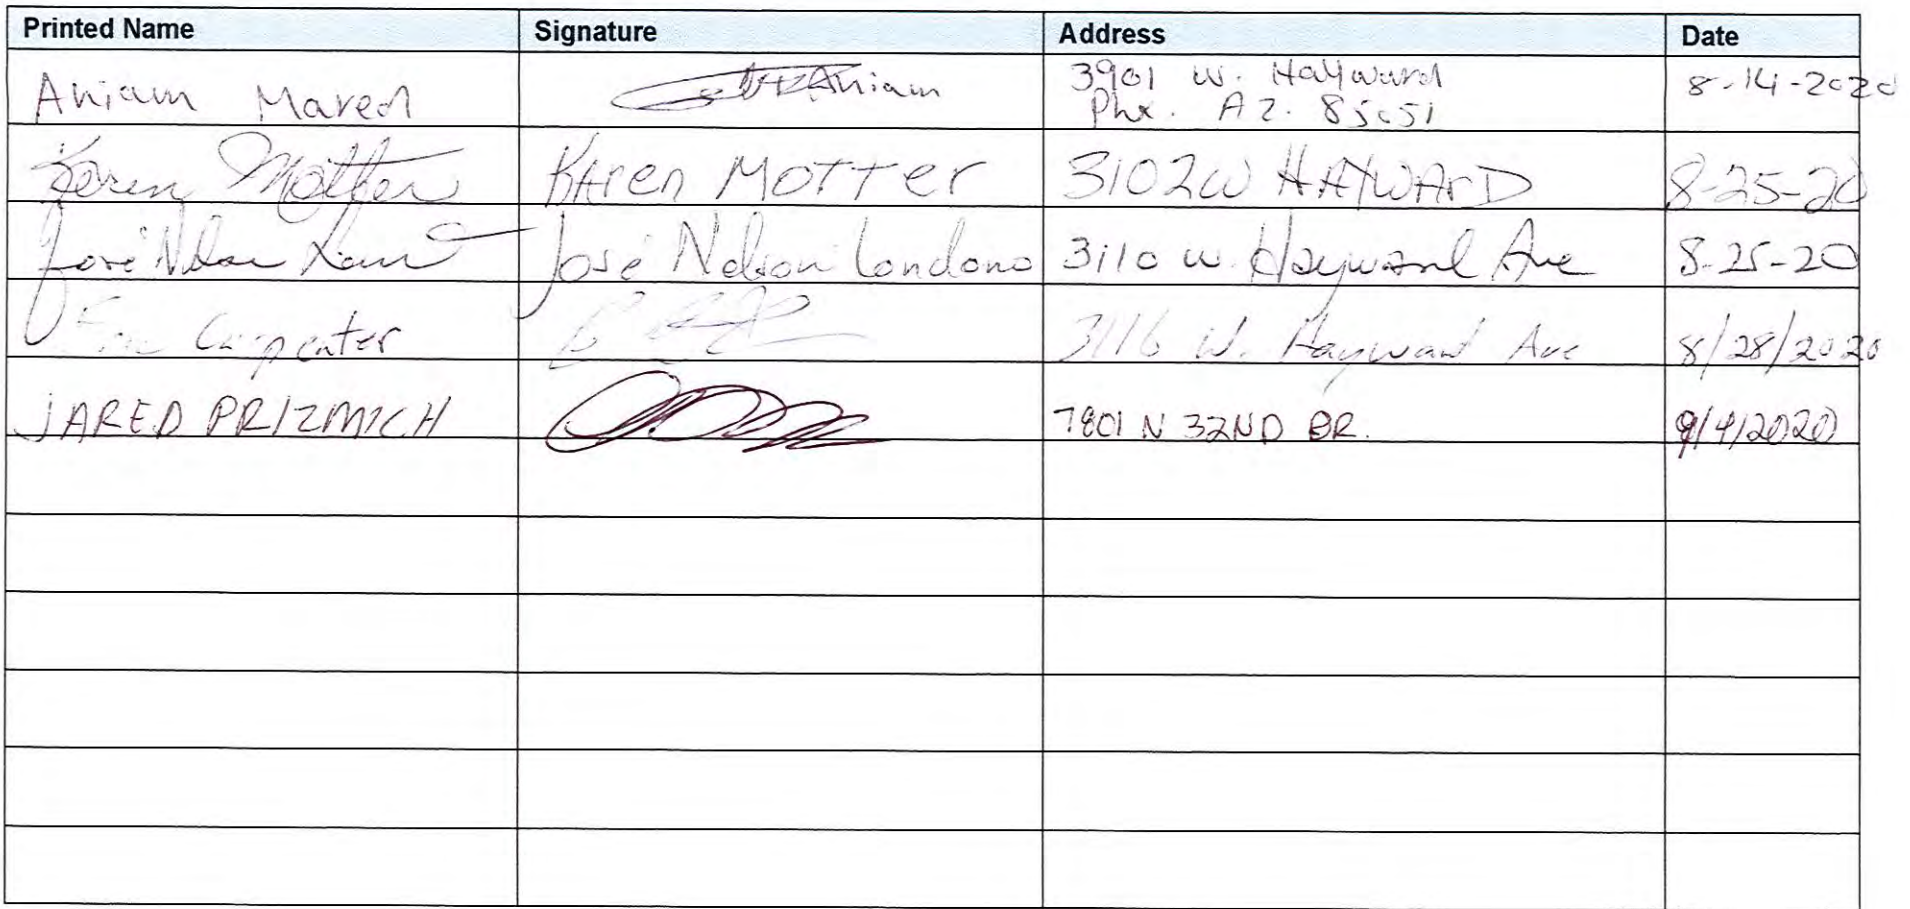 Printed Name Signature Address Date
Aniam Mared Aniam 3901 W. Hayward 8-14-2020
Phx. AZ. 85051
Karen Motter KAren MOTTer 3102W HAYWArD 8-25-20
José Nelson José Nelson Londono 3110 W. Hayward Ave 8-25-20
Eric Carpenter 3116 W. Hayward Ave 8/28/2020
JARED PRIZMICH 7801 N 32ND DR. 9/4/2020